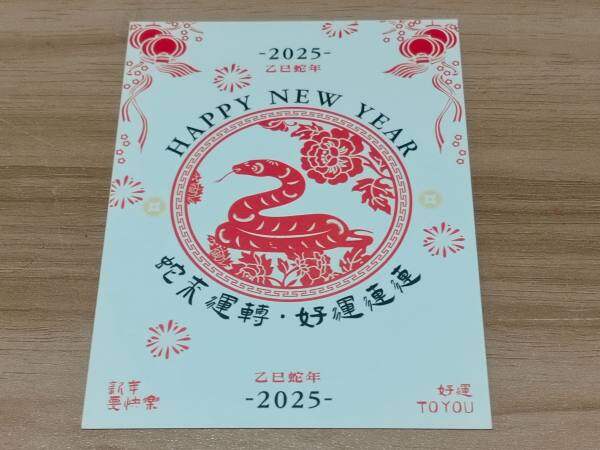 -2025-
乙巳蛇年
HAPPY NEW YEAR
蛇來運轉·好運蓮蓮
新年
要快樂
好運
TOYOU
乙巳蛇年
-2025-